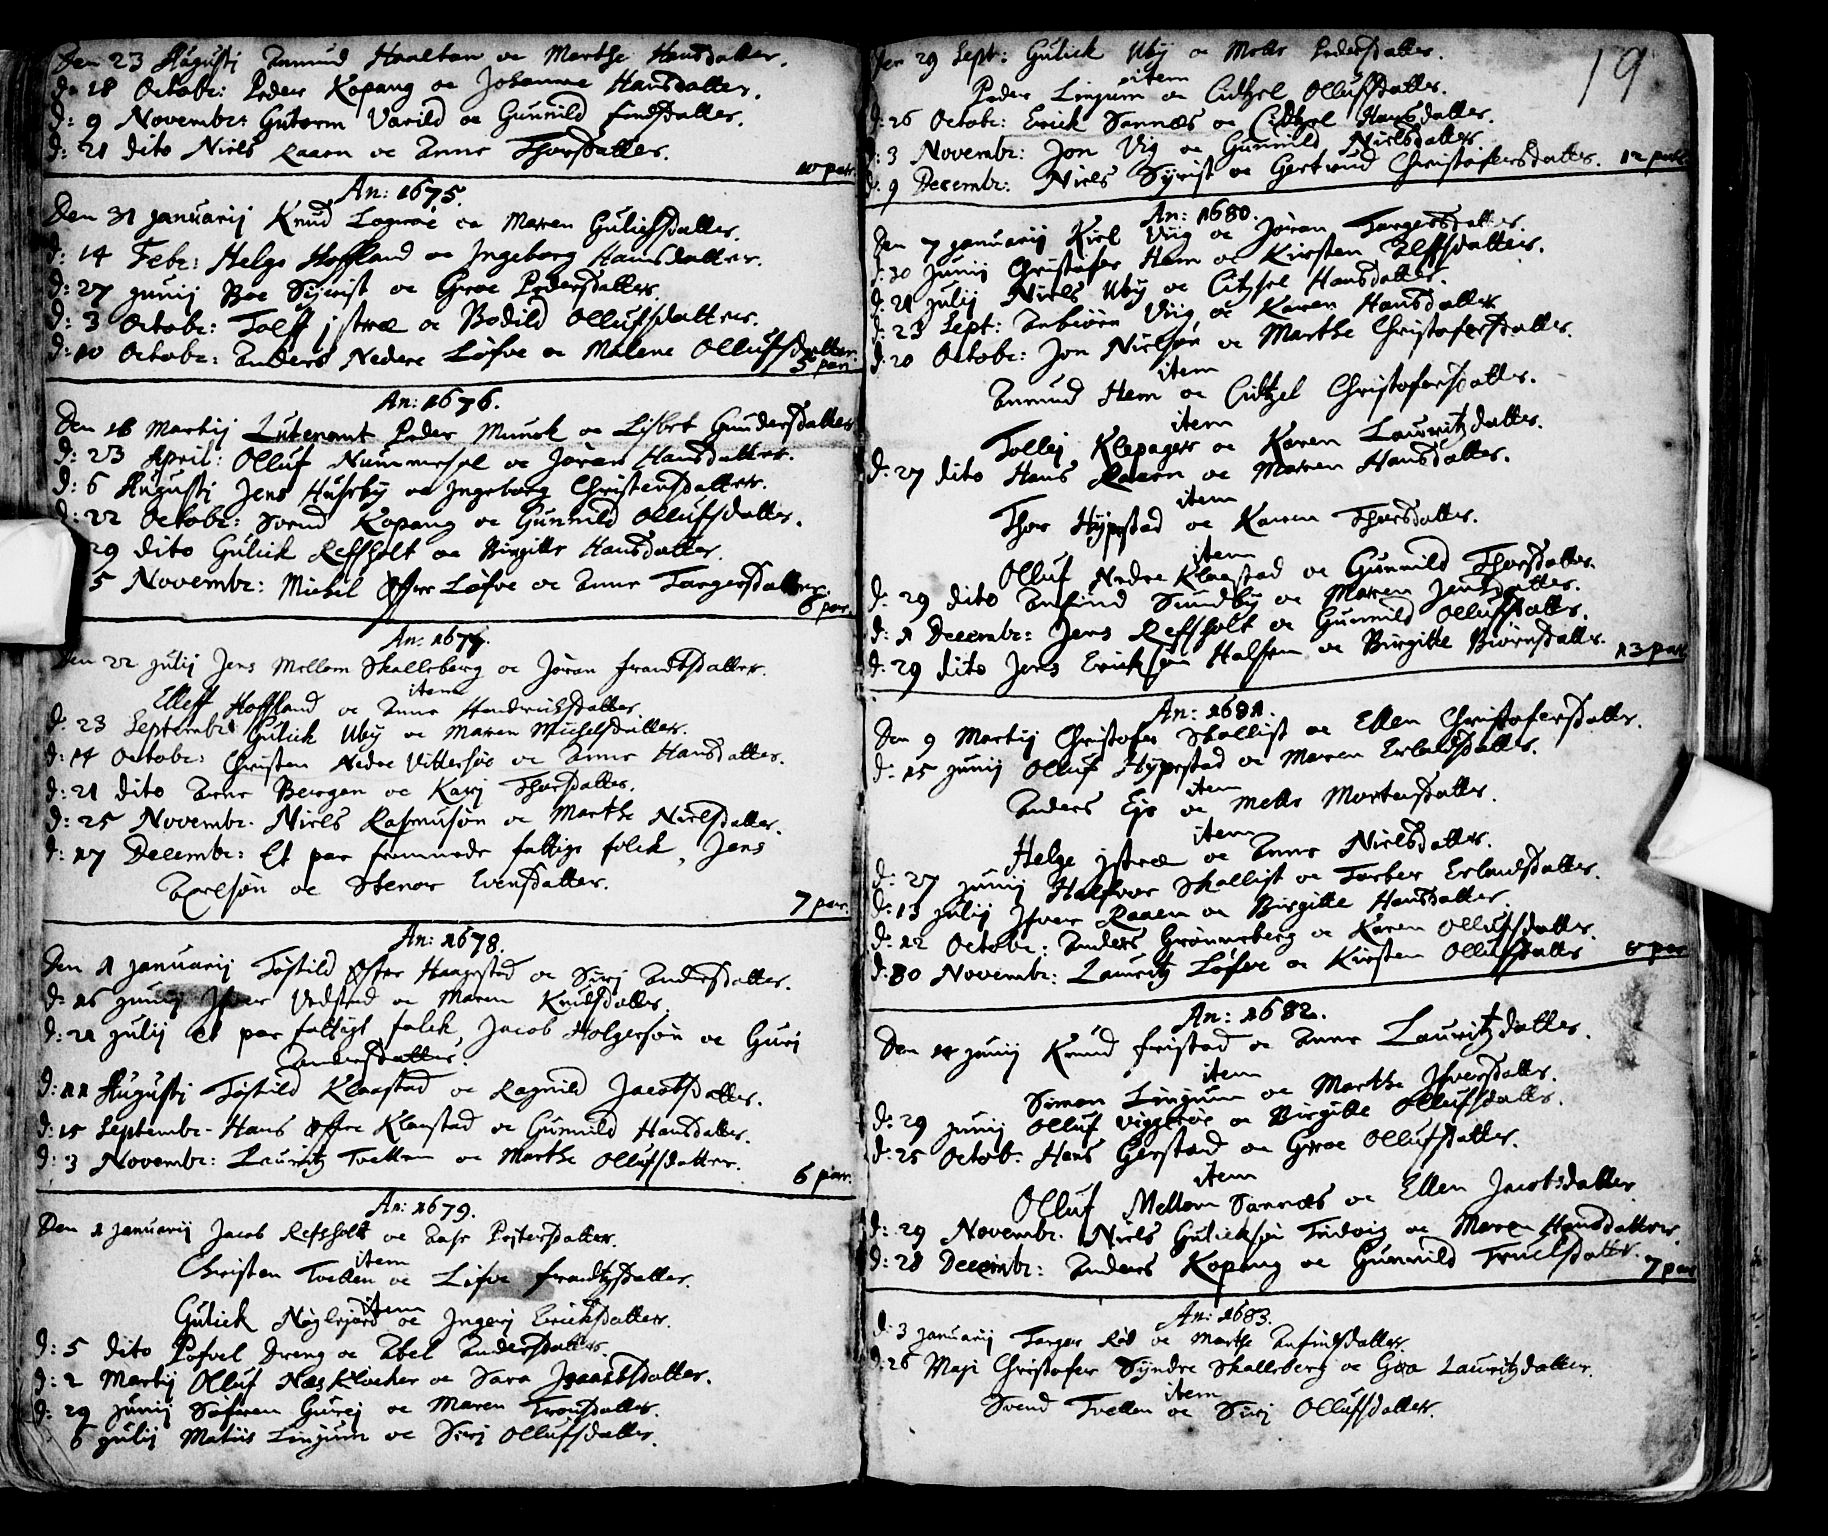 Den 23 Augustj Amund Haaltan oc Marthe Hansdatter.
d: 18 Octobr: Peder Kopang oc Johanne Hansdatter.
d: 9 Novembr: Gutorm Varild oc Gunnild findsdatter.
d: 21 dito Niels Raaen oc Anne Thorsdatter.
10 par.
An: 1675.
Den 31 Januarij Knud Lograe oc Maren Gulichsdatter.
d: 14 Febr: Helge Hoffland oc Ingeborg Hansdatter.
d: 27 Junij Boe Syrist oc Groe Pedersdatter.
d: 3 Octobr: Tolff jstræ oc Bodild Ollufsdatter.
d: 10 Octobr: Anders Nedre Løfve oc Malene Ollufsdatter.
5 par.
An: 1676.
Den 16 Martij Lutenamt Peder Munck oc Lisbet Gundersdatter
d: 23 April: Olluf Nummesel oc Jøran Hansdatter.
d: 6 Augustj Jens Huseby oc Ingeborg Christensdatter.
d: 22 Octobr: Svend Kopang oc Gunnild Ollufsdatter.
29 dito Gulick Refsholt oc Birgitte Hansdatter.
5 Novembr: Michel Øfre Løfve oc Anne Targersdatter.
6 par.
An: 1677.
Den 22 Julij Jens Mellom Skalleberg oc Jøran frandtsdatter.
item
Elleff Hoffland oc Anne Hendrichsdatter
d. 23 Septembr Gulick Uby oc Maren Michelsdatter.
d: 14 Octobr: Christen Nedre Vittersøe oc Anne Hansdatter.
d: 21 dito Arne Bergan oc Karj Thorsdatter.
d: 25 Novembr. Niels Rasmusøn oc Marthe Nielsdatter.
d: 17 Decembr: Et par fremmede fattige folck, Jens
Axelsøn oc Stenor Evensdatter.
7 par.
An: 1678.
Den 1 Januarij Tostild Øfre Haagestad oc Sirj Andersdatter.
d: 16 Junij Ifver Vedstad oc Maren Knudsdatter.
d: 21 Julij et par fattigt folck, Jacob Holgersøn oc Gurj
Andersdatter.
d: 11 Augustj Tostild Klaastad oc Ragnild Jacobsdatter.
d: 15 Septembr. Hans Øfre Klaastad oc Gunnild Hansdatter.
d: 3 Novembr: Lauritz Tvetten oc Marthe Ollufsdatter.
6 par.
An: 1679.
Den 1 Januarij Jacob Refsholt oc Aase Peitersdatter.
item
Christen Tvetten oc Lisve frandtzdatter.
item
Gulick Nøglegjord oc Ingerj Ericksdatter.
d: 5 dito Pofvel Dreng oc Abel Andersdatter.
d: 2 Martij Olluf Næs Klocker oc Sara Isaachsdatter.
d: 29 Junij Søfren Gurej oc Maren Tronsdatter.
6 Julij Matiis Linjum oc Sirj Ollufsdatter.
19
Den 29 Sept: Gulick Uby oc Mette Pedersdatter.
item
Peder Linjum oc Cidtzel Ollufsdatter.
d: 26 Octobr: Erick Sannæs oc Cidtzel Hansdatter.
d: 3 Novembr: Jon Vig oc Gunnild Nielsdatter.
d: 9 Decembr: Niels Syrist oc Gertrud Christofersdatter.
12 par
An: 1680.
Den 7 Januarij Kiel Viig oc Jøran Targersdatter.
d: 30 Junij Christofer Hem oc Kirsten Elffsdatter.
d: 21 Julij Niels Uby oc Citzsel Hansdatter.
d: 23 Sept: Anbiørn Viig oc Karen Hansdatter
d: 20 Octobr: Jon Nielsøn oc Marthe Christofersdatter.
item
Amund Hem oc Cidtzel Christofersdatter.
item
Tollej Klepager oc Karen Lauritzdatter.
d: 27 dito Hans Raaen oc Maren Hansdatter.
item
Thor Hypestad oc Karen Thorsdatter.
item
Olluf Nedre Klaastad oc Gunnild Thorsdatter.
d: 29 dito Anfind Sundby oc Maren Jensdatter.
d: 1 Decembr: Jens Refsholt oc Gunnild Ollufsdatter.
d: 29 dito Jens Ericksøn Halsen oc Birgitte Biørnsdatter.
13 par
An: 1681.
Den 9 Martij Christofer Skallist oc Ellen Christofersdatter.
d: 15 Junij Olluf Hypestad oc Maren Erlandsdatter.
item
Anders Eje oc Mette Mortensdatter.
item
Helge jstræ oc Anne Nielsdatter.
d: 27 Junij Halfvor Skallist oc Torber Erlandsdatter.
d: 13 Julij Ifver Raaen oc Birgitte Hansdatter.
d: 12 Octobr: Anders Grønneberg oc Karen Ollufsdatter.
d: 30 Novembr: Lauritz Løfve oc Kirsten Ollufsdatter
8 par
An: 1682.
Den 11 Junij Knud fristad oc Anne Lauritzdatter.
item
Simon Linjum oc Marthe Ifversdatter.
d: 29 Junij Olluf Viggerøe oc Birgitte Ollufsdatter.
d: 25 Octob: Hans Gerstad oc Groe Ollufsdatter.
item
Olluf Mellom Sannæs oc Ellen Jacobsdatter
d: 29 Novembr. Niels Gulicksøn Tudvig oc Maren Hansdatter.
d: 28 Decembr: Anders Kopang oc Gunnild Truelsdatter.
7 par
An: 1683.
d: 3 Januarij Targer Rød oc Marthe Anfindsdatter.
d: 26 Maji Christofer Syndre Skalleberg oc Goa Lauritzdatter.
item
Svend Tvetten oc Sirj Ollufsdatter.